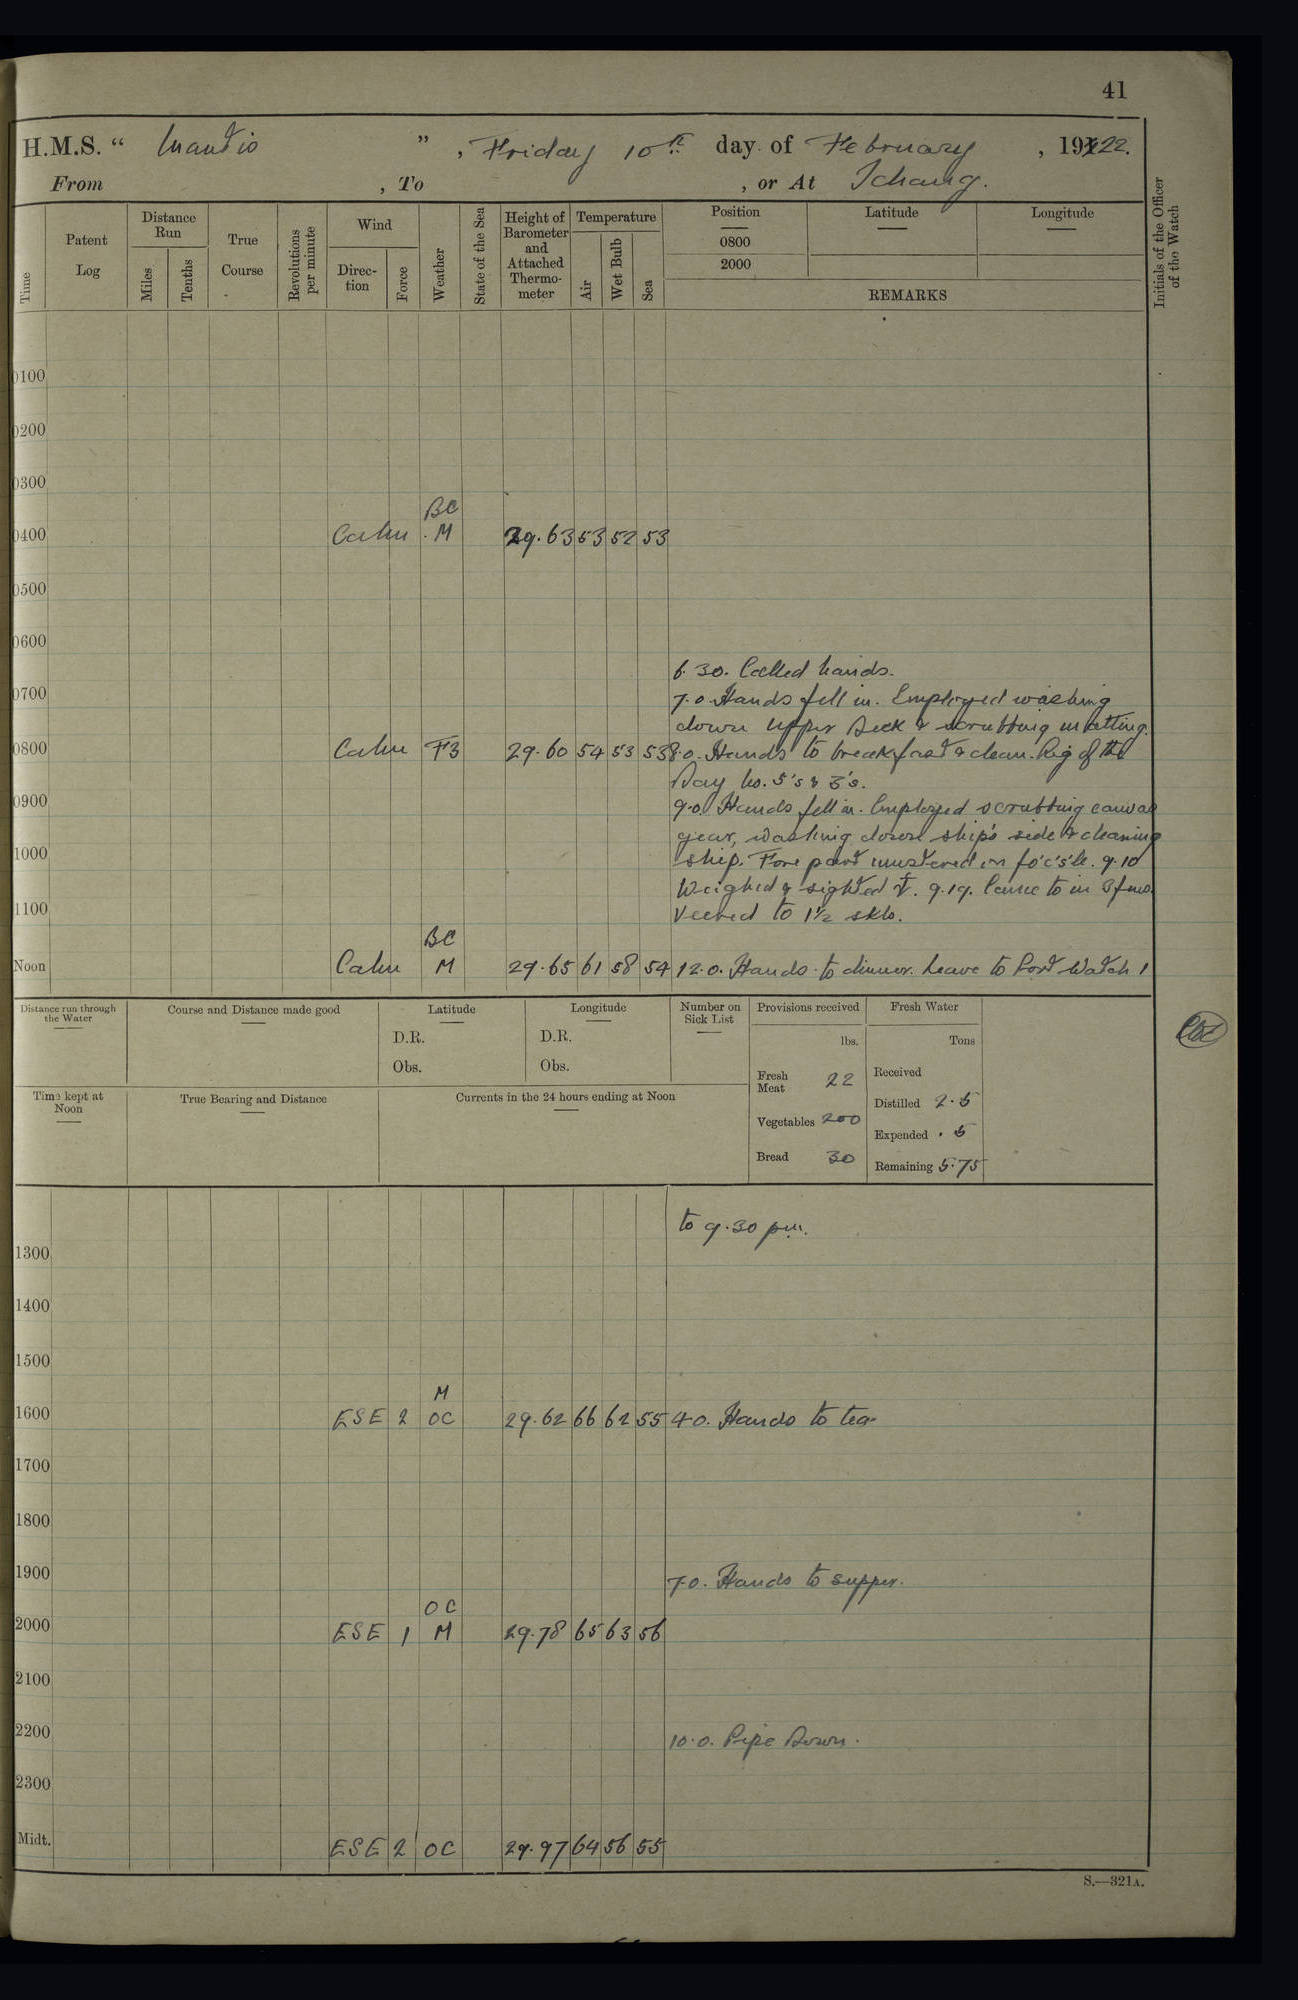 41
H.M.S. " Mantis ", Friday 10th day of February, 1922.
From , To , or At Ichang.
Time
Patent Log
Distance Run
Miles
Tenths
True Course
Revolutions per minute
Wind
Direction
Force
Weather
State of the Sea
Height of Barometer and Attached Thermometer
Temperature
Air
Wet Bulb
Sea
Position
0800
2000
Latitude
Longitude
REMARKS
Initials of the Officer of the Watch
0100
0200
0300
BC
0400 Calm M 29.63 53 52 53
0500
0600
6.30. Called hands.
0700 7.0. Hands fell in. Employed washing
down upper deck & scrubbing matting.
0800 Calm F3 29.60 54 53 53 8.0. Hands to breakfast & clean. Rig of the
Day No. 5's & 3's.
0900 9.0. Hands fell in. Employed scrubbing canvas
gear, washing down ship's side & cleaning
1000 ship. Fore part mustered on fo'c's'le. 9.10
Weighed & sighted ⚓. 9.19. Came to in 3 fms.
1100 Veered to 1½ skls.
BC
Noon Calm M 29.65 61 58 54 12.0. Hands to dinner. Leave to Port Watch 1
Distance run through the Water
Course and Distance made good
Latitude
D.R.
Obs.
Longitude
D.R.
Obs.
Number on Sick List
Provisions received
lbs.
Fresh Meat 22
Vegetables 200
Bread 30
Fresh Water
Tons
Received
Distilled 2.5
Expended .5
Remaining 5.75
Time kept at Noon
True Bearing and Distance
Currents in the 24 hours ending at Noon
to 9.30 pm.
1300
1400
1500
M
1600 ESE 2 OC 29.62 66 62 55 4.0. Hands to tea.
1700
1800
1900 7.0. Hands to supper.
OC
2000 ESE 1 M 29.78 65 63 56
2100
2200 10.0. Pipe Down.
2300
Midt. ESE 2 OC 29.97 64 56 55
S.—321A.